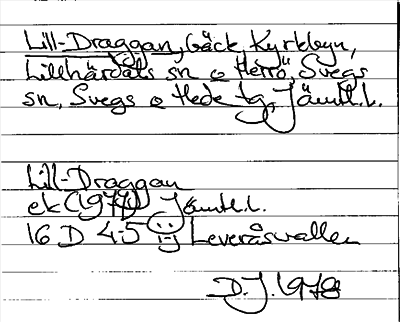 Lill-Draggan, Gäck, Kyrkbyn,
Lillhärdals sn o Herrö, Svegs
sn, Svegs o Hede tg, Jämtl.l.
Lill-Draggan
ek (1971) Jämtl.l.
16 D 4-5 i-j Leveråsvallen
D.J. 1978